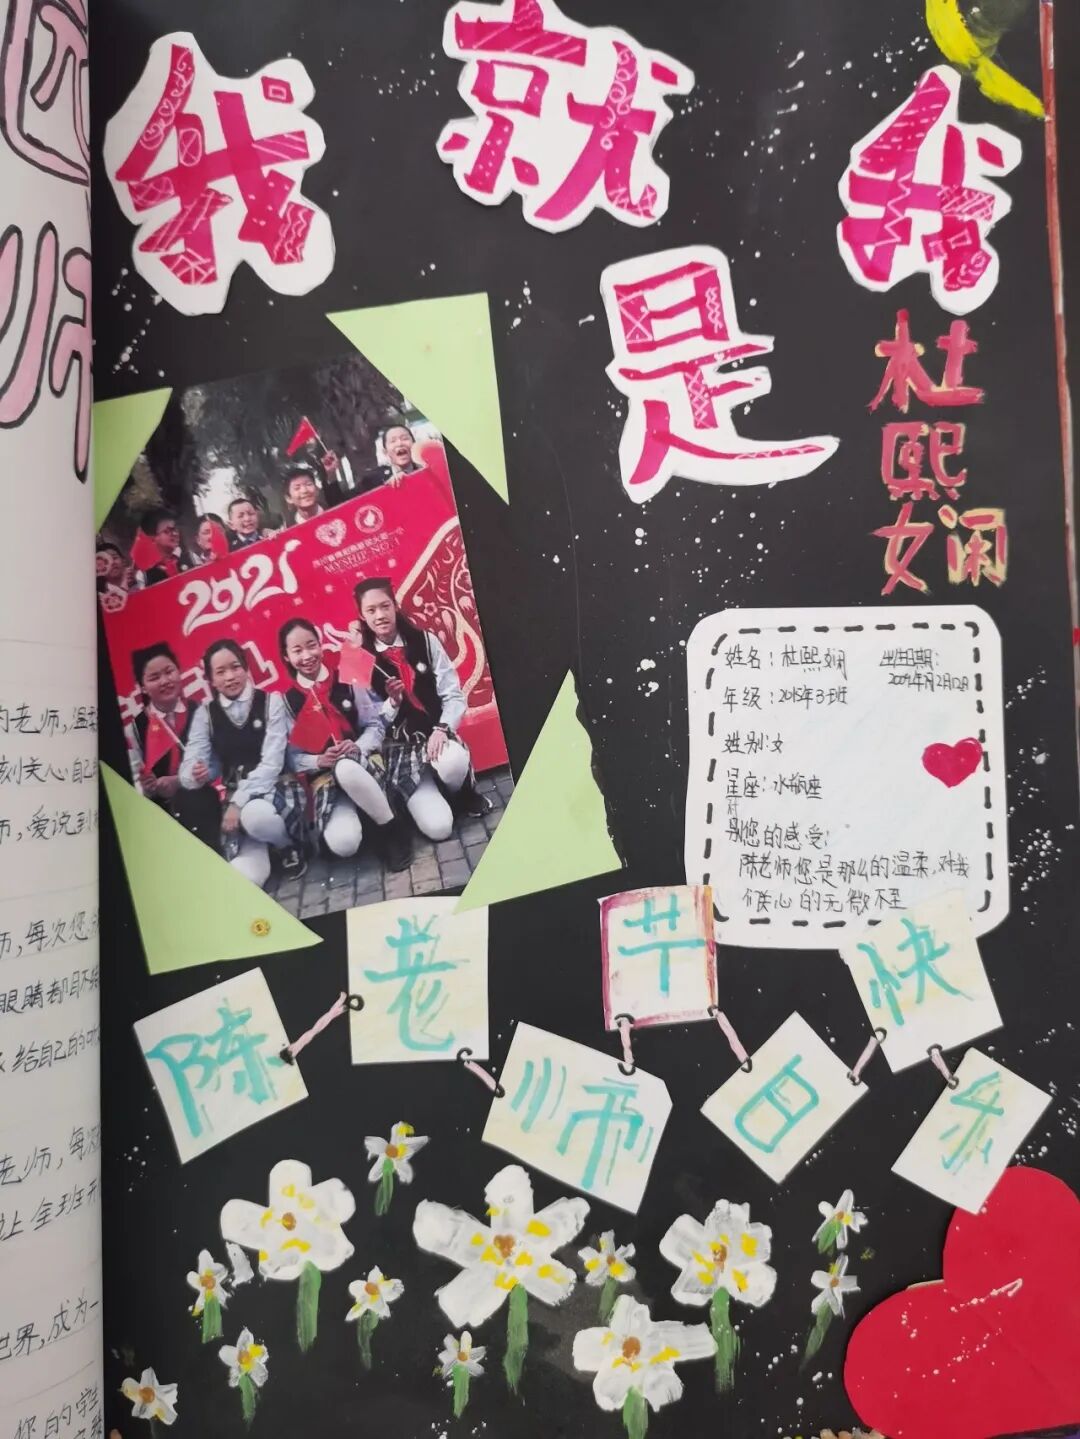 我就我
是
杜
熙
娴
2021
MYSHIP NO.1
姓名：杜熙娴
出生日期：
年级：2015年3班
姓别：女
星座：水瓶座
对
您的感受：
陈老师您是那么的温柔，对我
们关心的无微不至
陈老师节日快乐
师
的老师，温柔
刻关心自己
师，爱说到
师，每次您
眼睛都
给自己的
老师，每次
让全班开
世界，成为一
您的学生